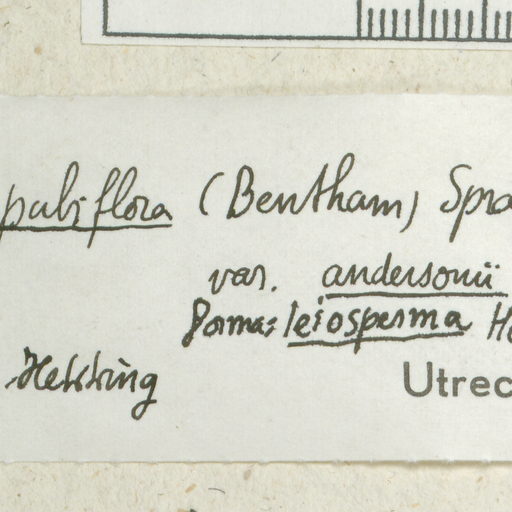 pubiflora (Bentham) Spra
var. andersonii
Forma: leiosperma He
Hekking Utrec